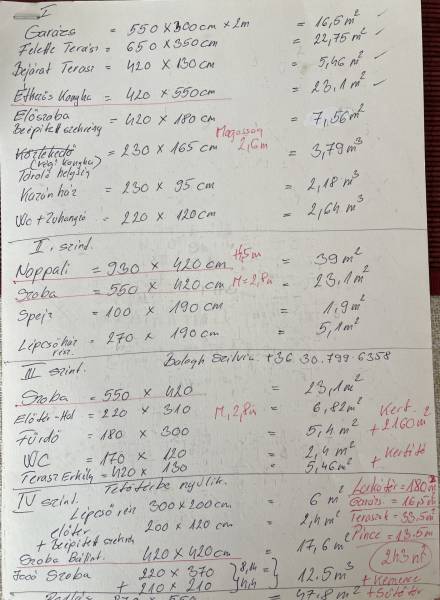 I
Garázs = 550 x 300cm x 2m = 16,5 m² ✓
Felette Terasz = 650 x 350cm = 22,75 m² ✓
Bejárat Terasz = 420 x 130cm = 5,46 m² ✓
Étkezős Konyha = 420 x 550cm = 23,1 m² ✓
Előszoba = 420 x 180 cm = 7,56 m²
Beépített szekrény
Magasság 2,6m
Közlekedő = 230 x 165 cm = 3,79 m³
(régi konyha)
Tároló helység
Kazánház = 230 x 95 cm = 2,18 m³
Wc + Zuhanyzó = 220 x 120cm = 2,64 m³
II. szint.
Nappali = 930 x 420 cm = 39 m²
Szoba = 550 x 420 cm M=2,8m = 23,1 m²
Spejz = 100 x 190cm = 1,9 m²
Lépcsőház = 270 x 190cm = 5,1 m²
rész.
III szint. Balogh Szilvia +36 30.799-6358
Szoba = 550 x 420 = 23,1 m²
Előtér-Hal = 220 x 310 M, 2,8m = 6,82 m²
Kert. + 2160 m²
Fürdő = 180 x 300 = 5,4 m²
WC = 170 x 120 = 2,4 m² + Kertitó
Terasz Erkély = 420 x 130 = 5,46 m²
IV szint. Tetőtérbe nyúlik.
Lépcső rész 300 x 200cm = 6 m²
előtér 200 x 120 cm = 2,4 m²
+ Beépített szekrény
Szoba Bálint. 420 x 420cm = 17,6 m²
Jocó Szoba 220 x 370 } 8,14 = 12.5 m³
+ 210 x 210 } 4,4
Lakótér = 180 m²
Garázs = 16,5 m²
Teraszok = 33,5 m²
Pince = 13.5 m
243 m²
+ Kemence
= 47,8 m²